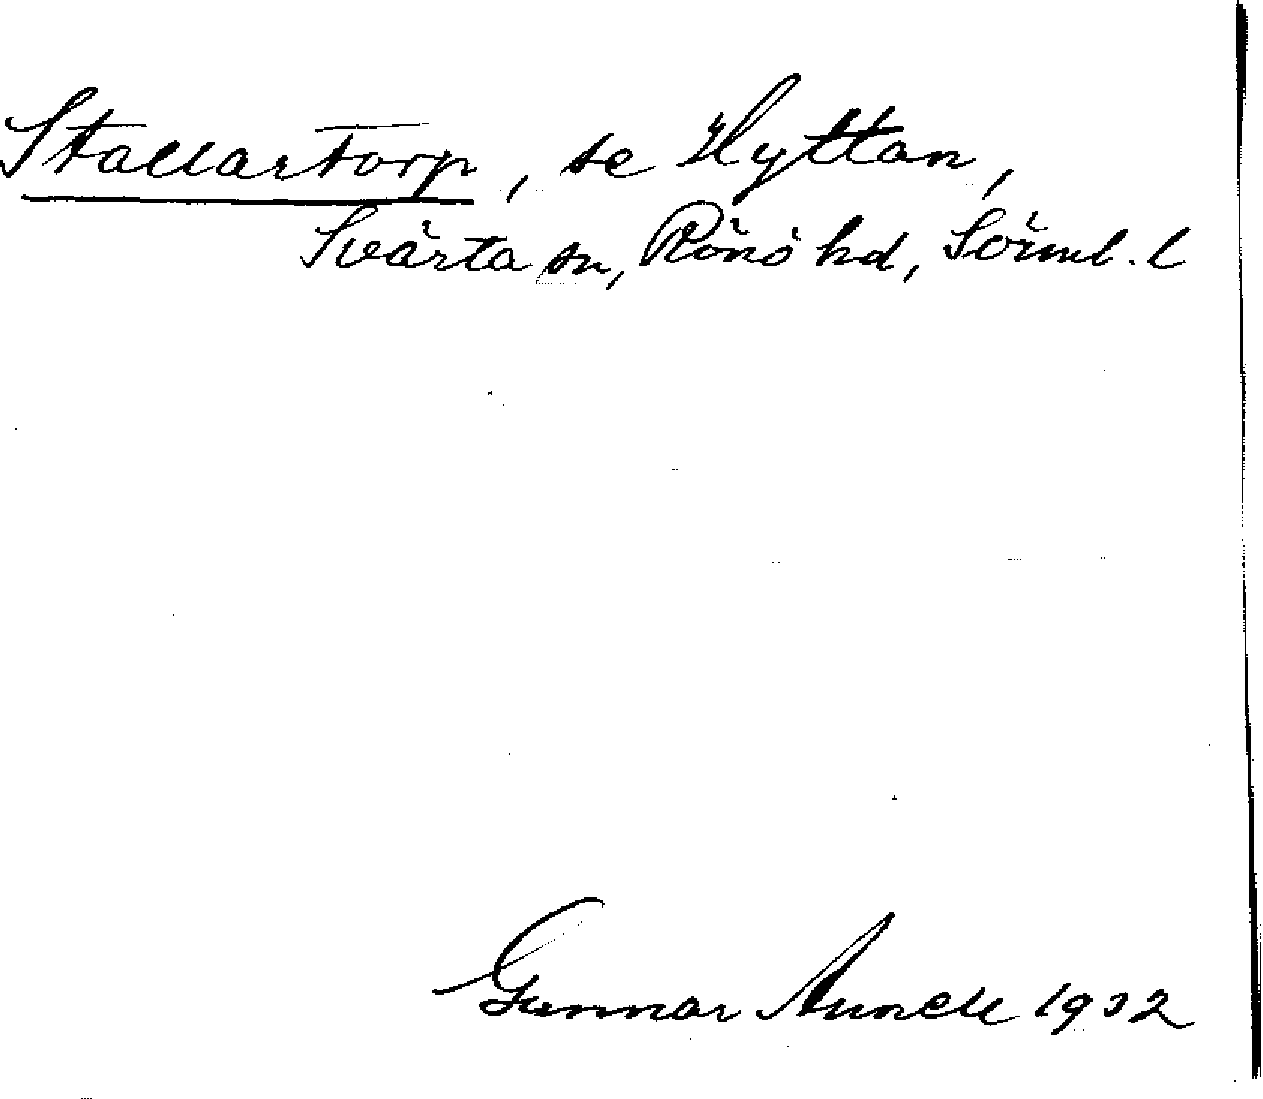 Stallartorp, se Hyttan,
Svärta sn, Rönö hd, Sörml. l
Gunnar Aunell 1932